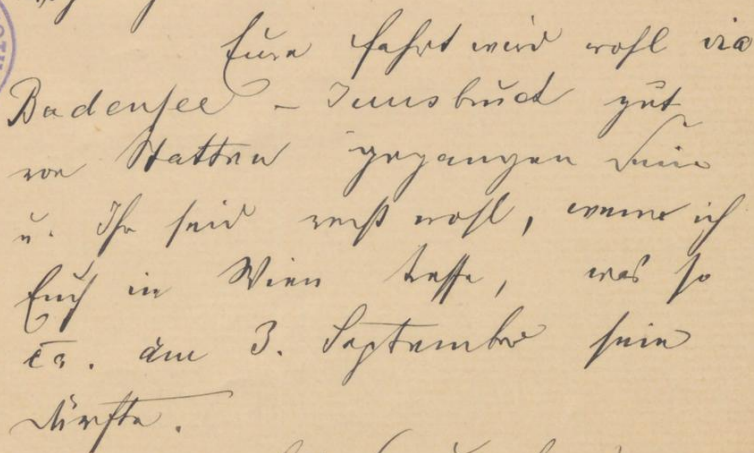 Eure Fahrt wird wohl via
Badensee – Innsbruck gut
von Statten gegangen sein
u. Ihr seid recht wohl, wenn ich
Euch in Wien treffe, was so
ca. am 3. September sein
dürfte.